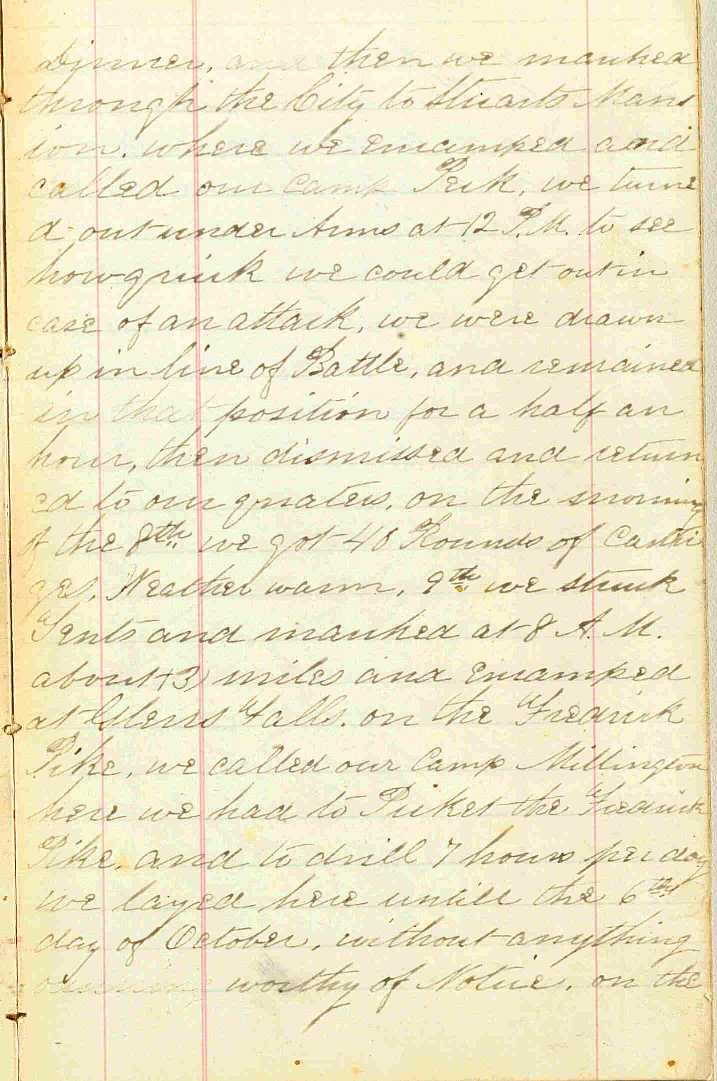 Dinner, and then we marched
through the City to Stuarts Mans
ion. where we encamped and
called our Camp Peck, we turne
d out under Arms at 12 P.M. to see
how quick we could get out in
case of an attack, we were drawn
up in line of Battle, and remained
in that position for a half an
hour, then dismissed and return
ed to our quaters, on the morning
of the 8th. we got 40 Rounds of Cartri
ges, Weather warm, 9th we struck
Tents and marched at 8 A.M.
about (3) miles and encamped
at Glens Falls. on the Fredrick
Pike, we called our Camp Millington
here we had to Picket the Fredrick
Pike, and to drill 7 hours per day
we layed here untill the 6th
day of October, without anything
occuring worthy of Notice. on the